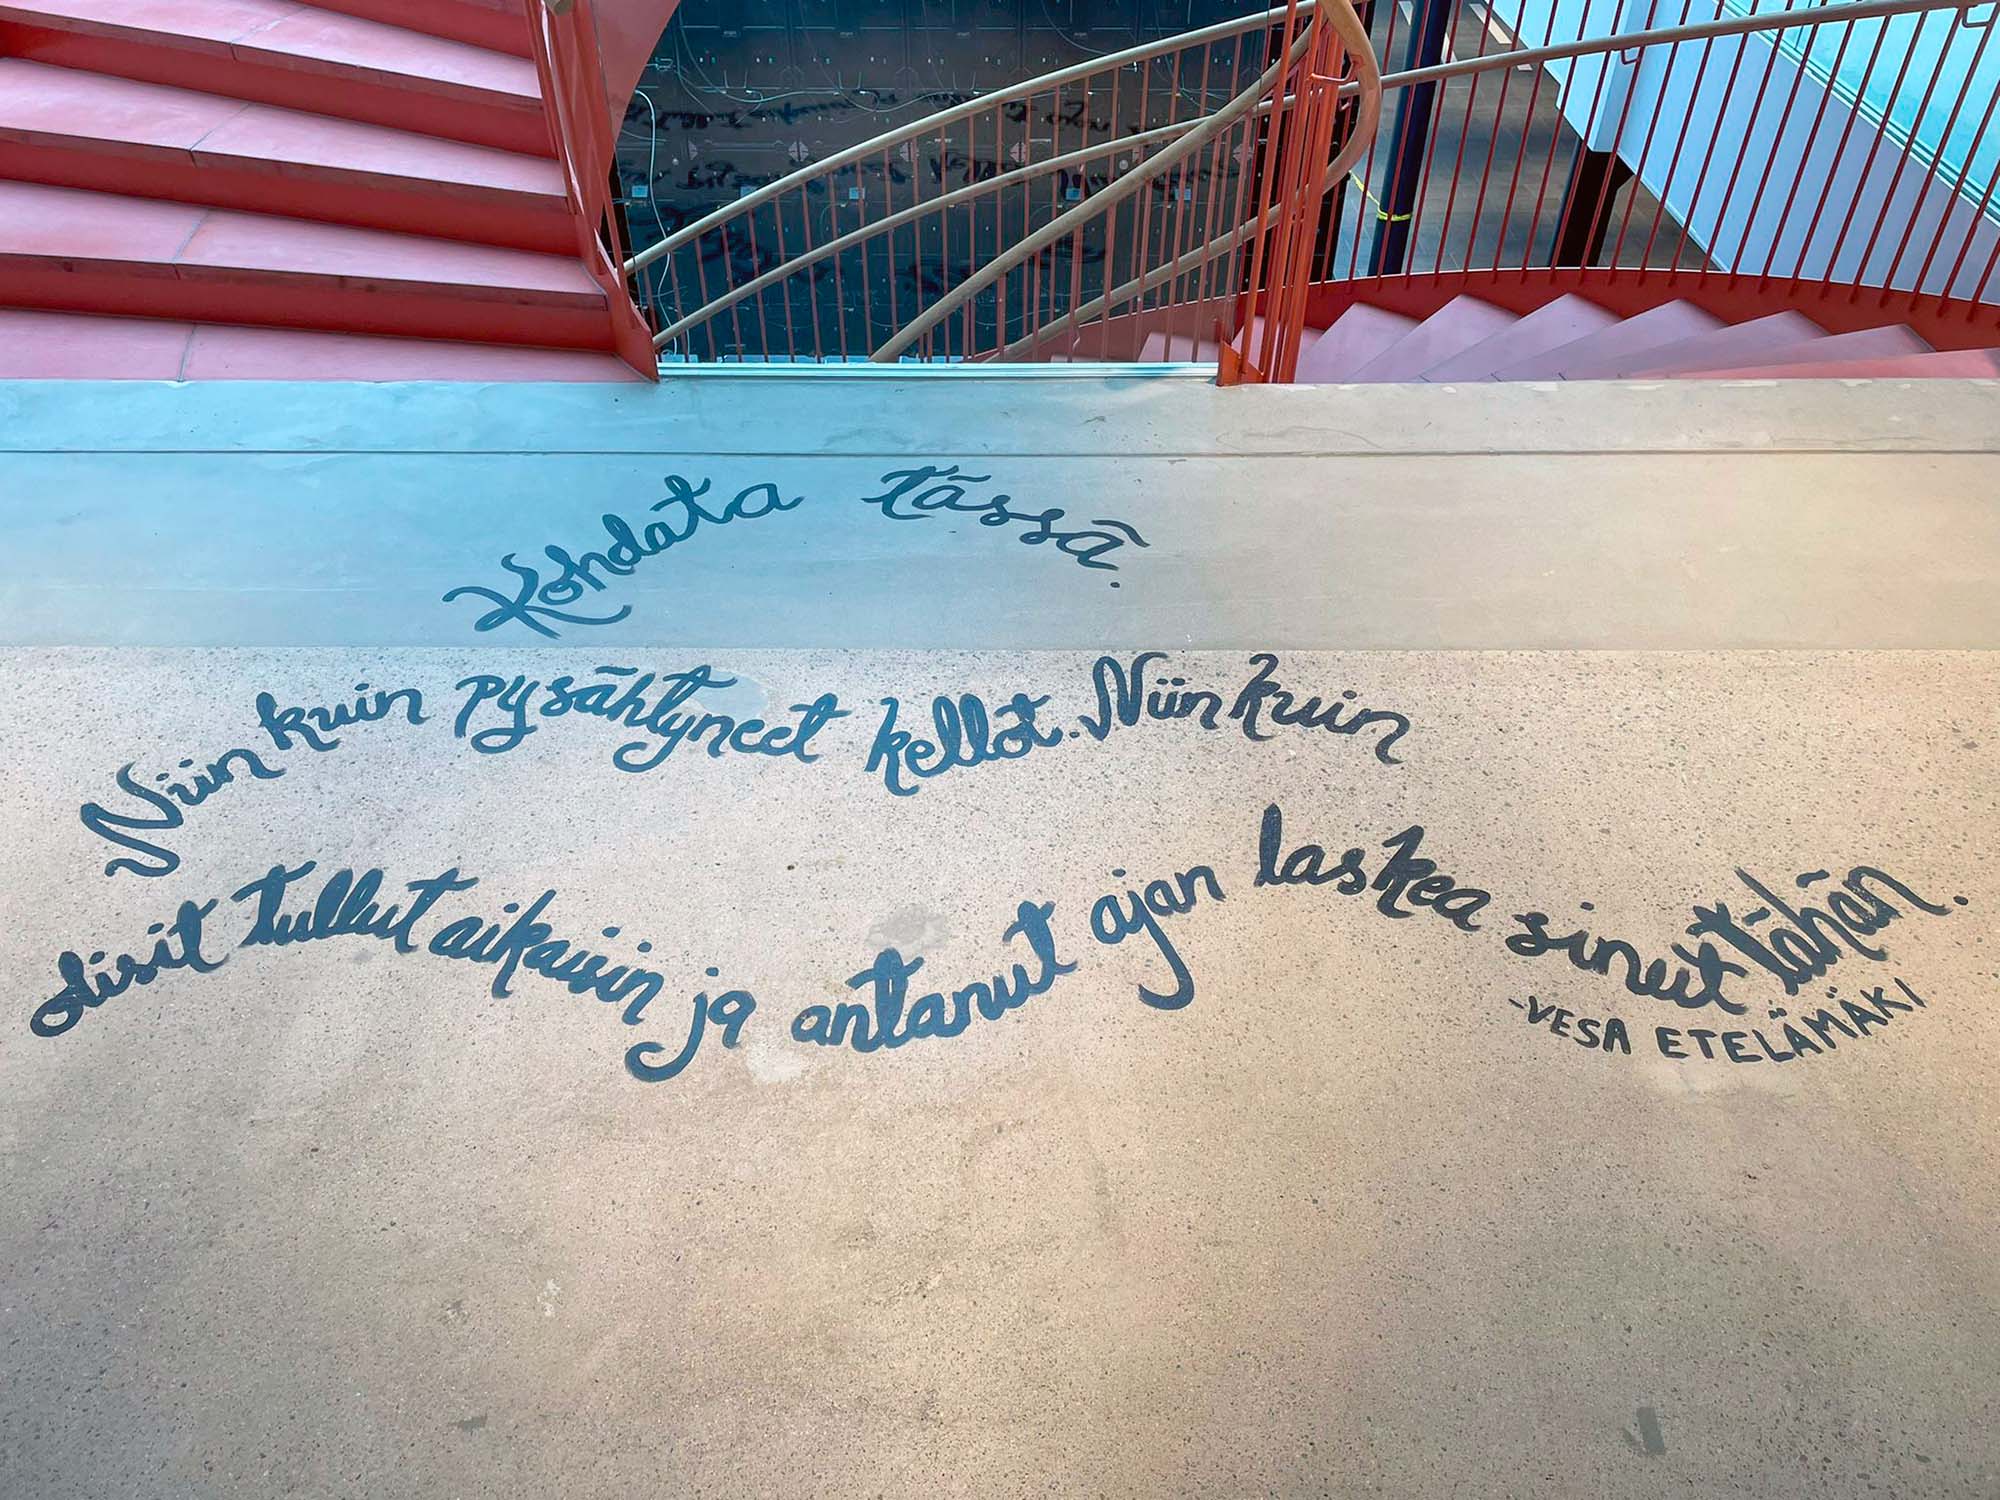 Kohdata tässä.
Niin kuin pysähtyneet kellot. Niin kuin
olisit tullut aikaisin ja antanut ajan laskea sinut tähän.
-VESA ETELÄMÄKI